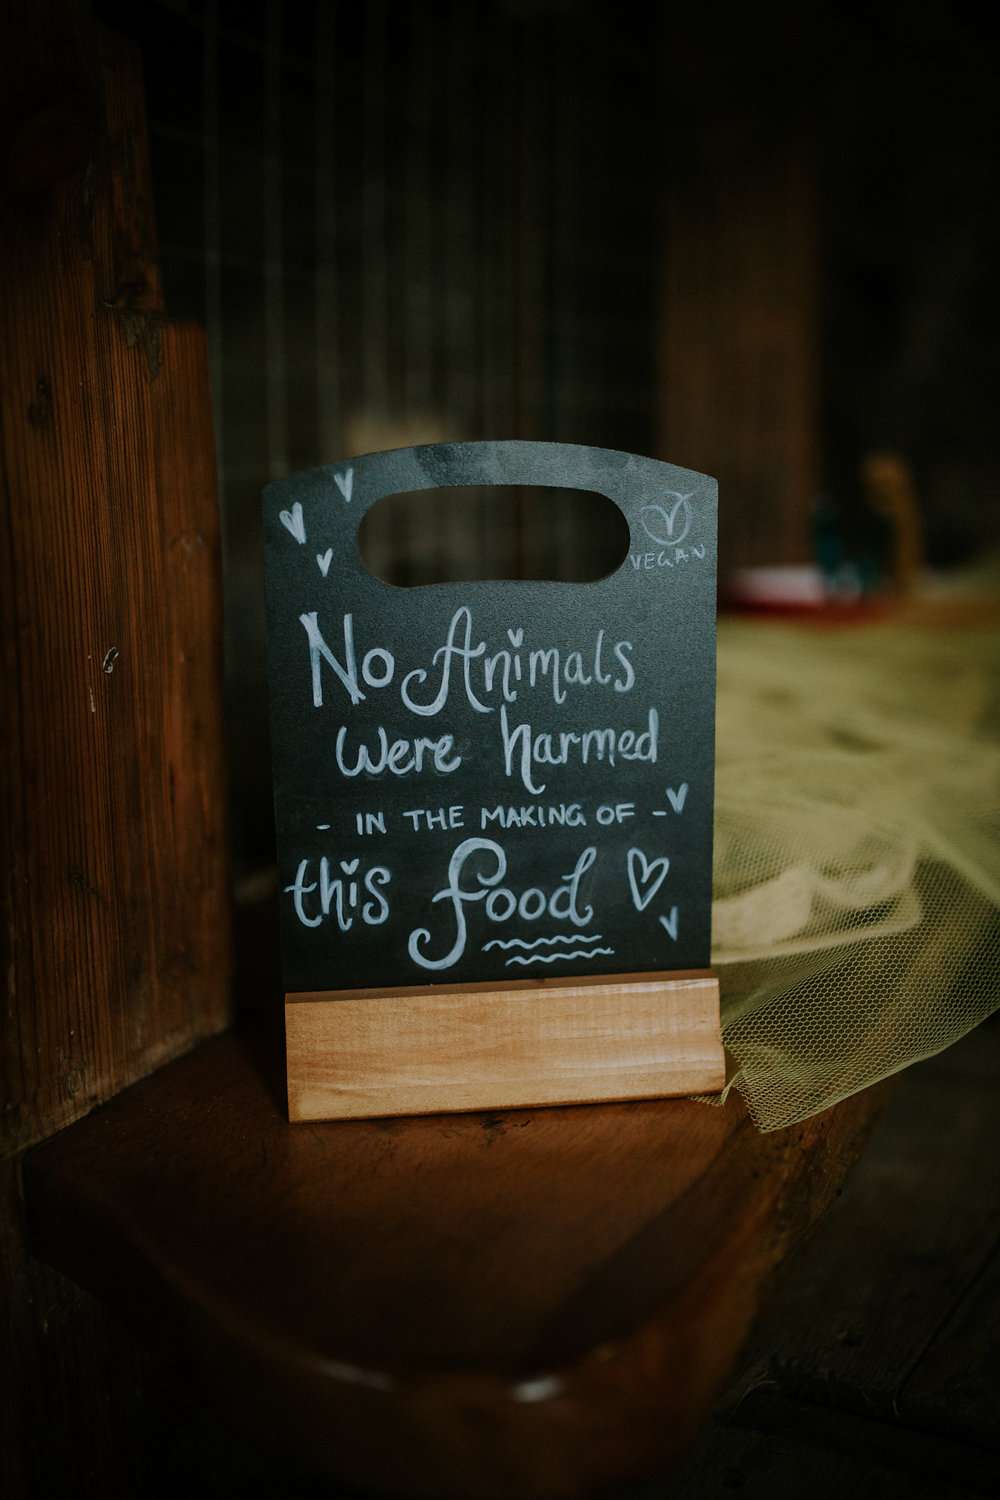 VEGAN
No Animals
were harmed
- IN THE MAKING OF -
this food